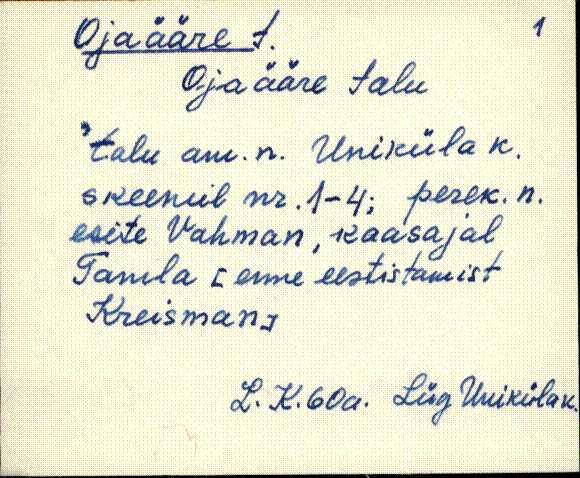 Ojaääre t. 1
Ojaääre talu
"talu am. n. Uniküla k.
skeemil nr. 1-4; perek. n.
esite Vahman, kaasajal
Tamla [enne eestistamist
Kreisman]
L. K. 60a. Lüg Uniküla k.